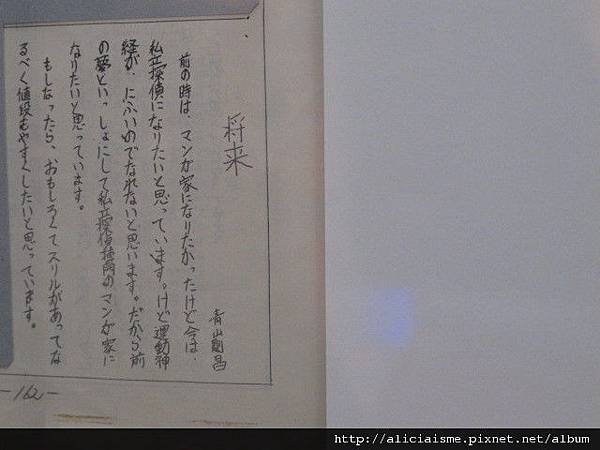 将来
青山剛昌
前の時は、マンガ家になりたかったけど今は、
私立探偵になりたいと思っています。けど運動神
経が、にぶいのでなれないと思います。だから前
の夢といっしょにして私立探偵専門のマンガ家に
なりたいと思っています。
もしなったら、おもしろくてスリルがあってな
るべく値段もやすくしたいと思っています。
-162-
http://aliciaisme.pixnet.net/album